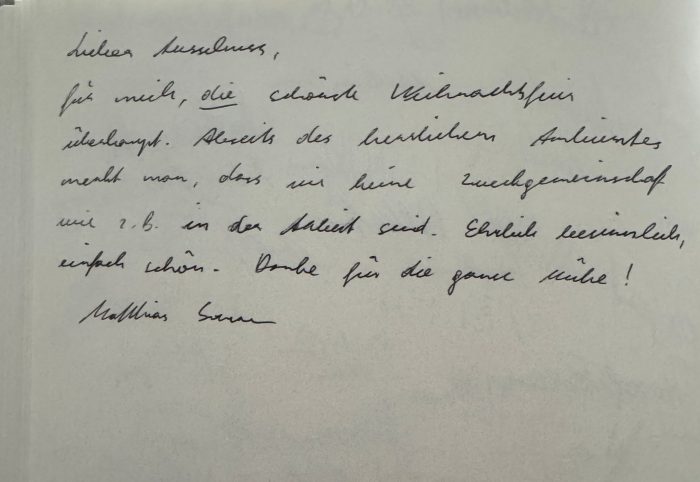 Lieber Anselmus,
für mich, die schönste Weihnachtsfeier
überhaupt. Abseits des herrlichen Ambientes
merkt man, dass wir keine Zweckgemeinschaft
wie z.B. in der Arbeit sind. Ehrlich besinnlich,
einfach schön. Danke für die ganze Mühe!
Matthias